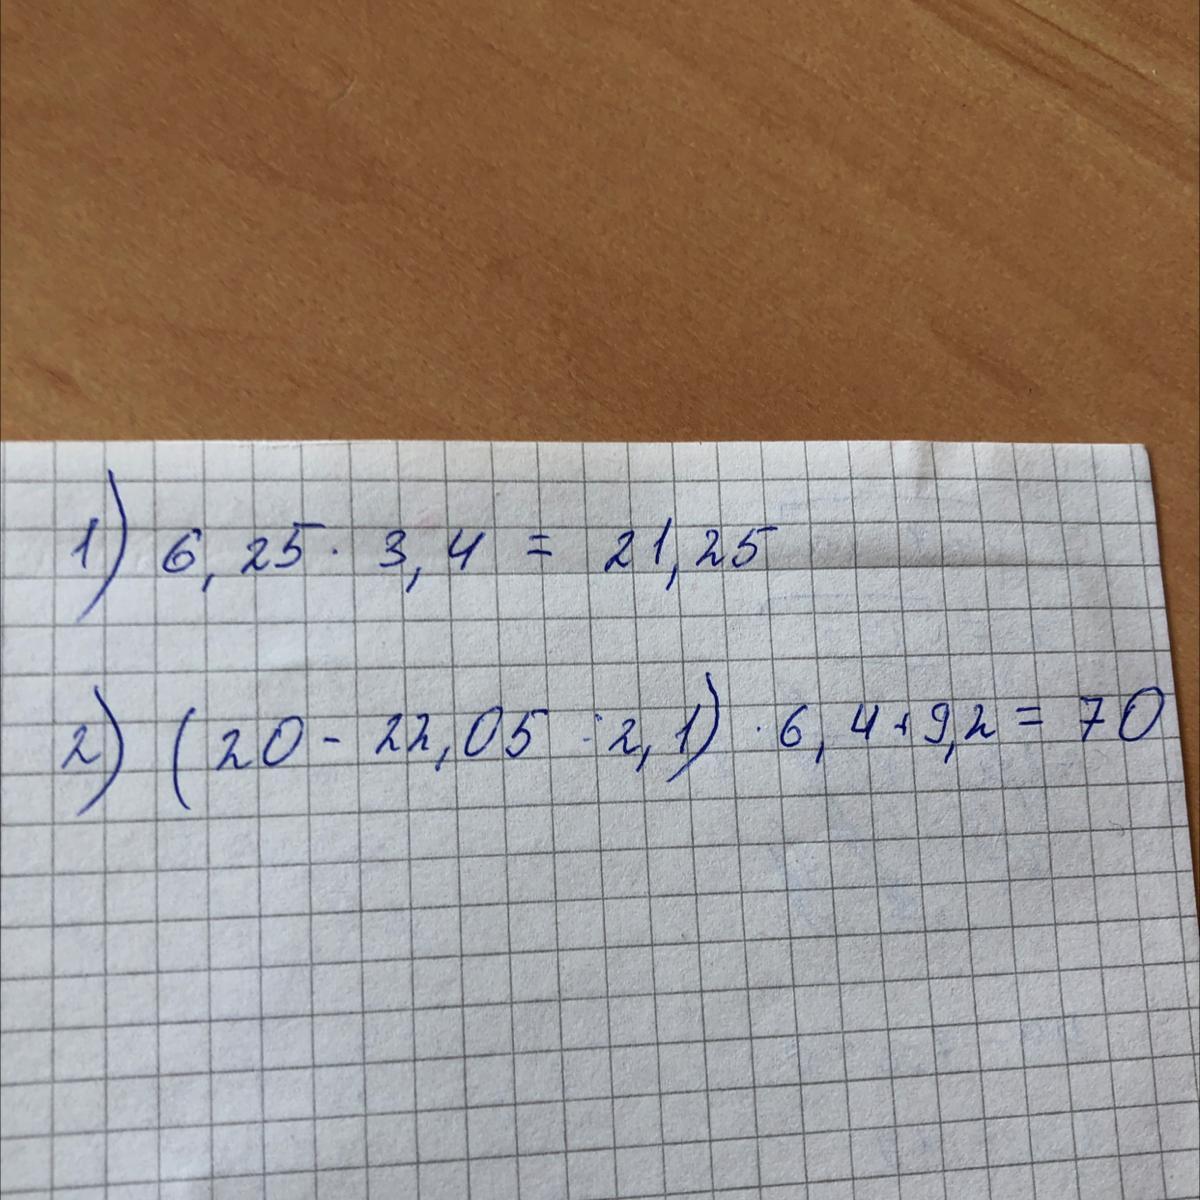 1) 6,25 · 3,4 = 21,25
2) (20 - 22,05 : 2,1) · 6,4 + 9,2 = 70